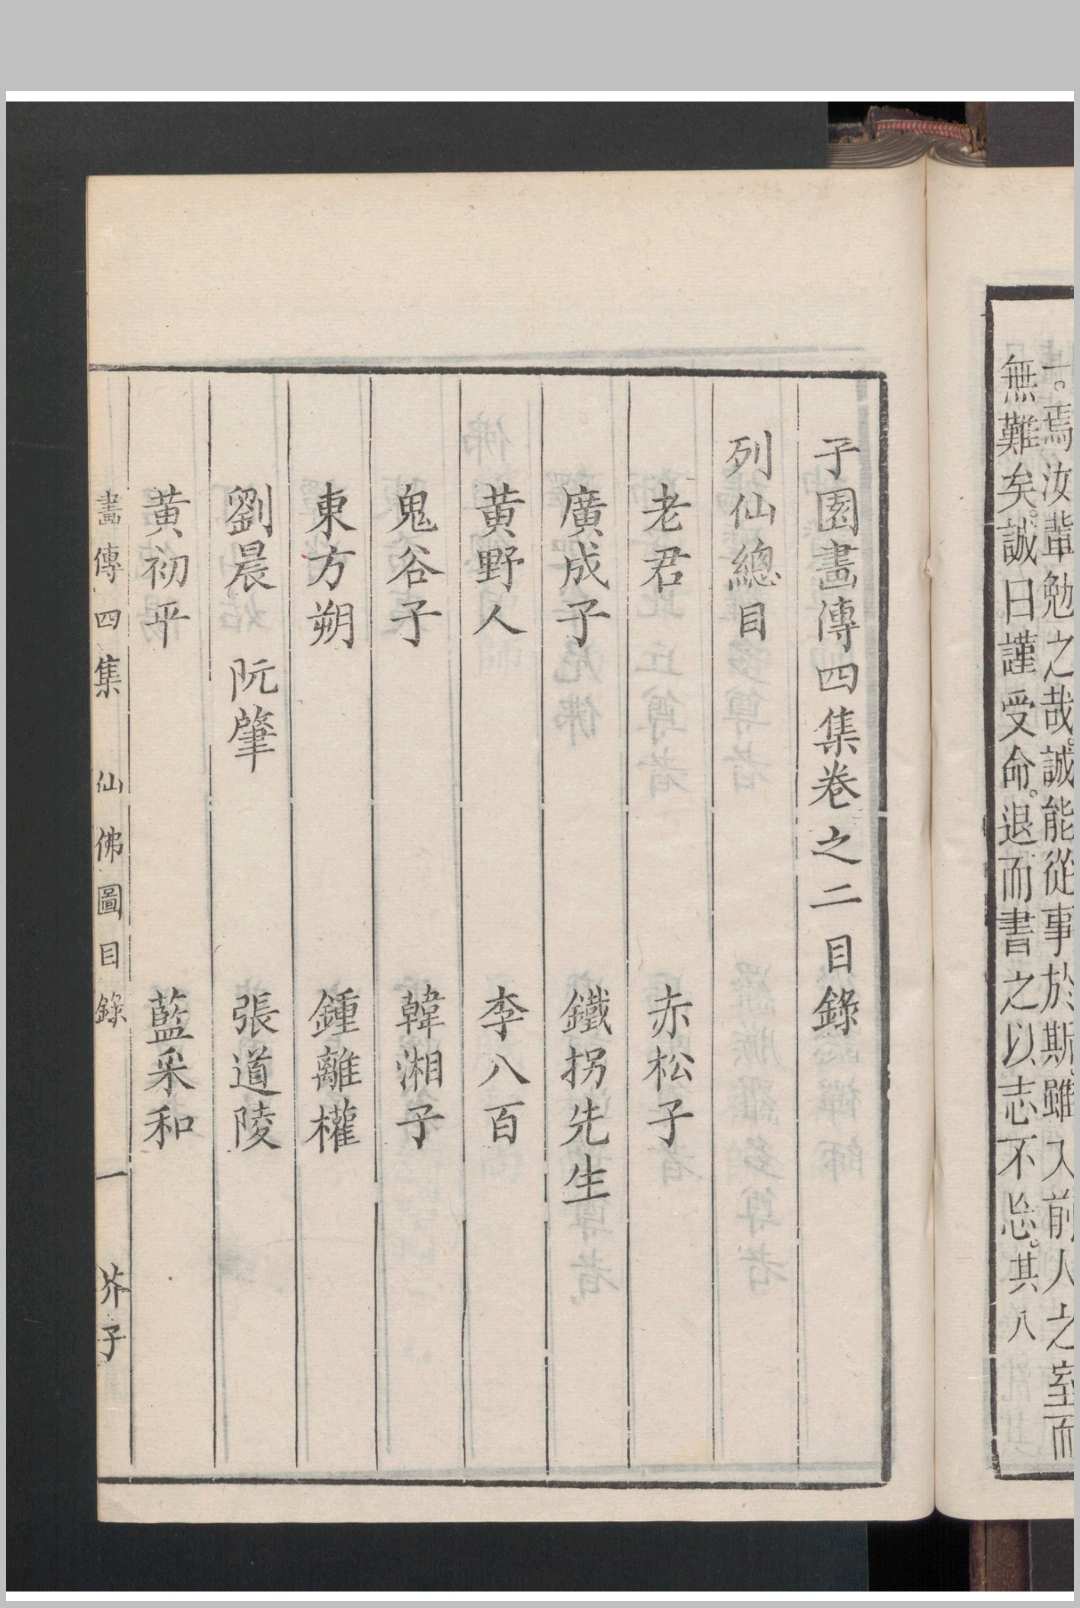 一。焉汝輩勉之哉。誠能從事於斯。雖入前人之室而
無難矣。誠曰謹受命。退而書之以志不忘。其八
子園畫傳四集卷之二目錄
列仙總目
老君 赤松子
廣成子 鐵拐先生
黃野人 李八百
鬼谷子 韓湘子
東方朔 鍾離權
劉晨 阮肇 張道陵
黃初平 藍采和
畫傳四集 仙佛圖目錄 一 芥子